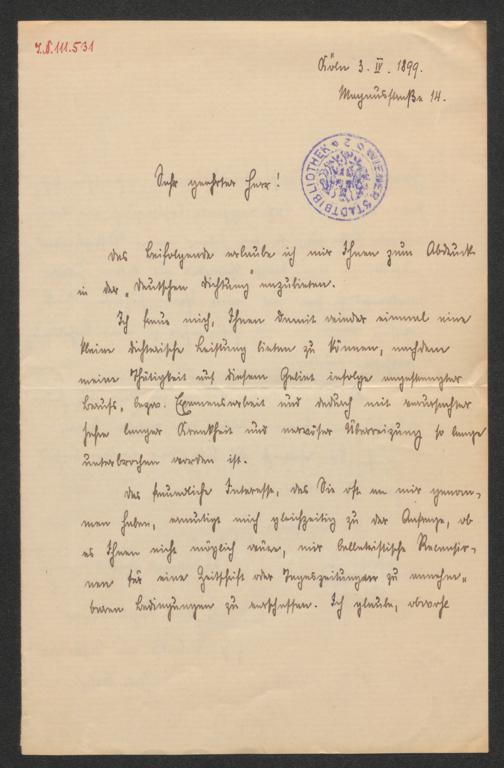 J.N. 111.531
Köln 3. IV. 1899.
Magnusstraße 14.
WIENER STADTBIBLIOTHEK
Sehr geehrter Herr!
Das Beifolgende erlaube ich mir Ihnen zum Abdruck
in der „Deutschen Dichtung“ anzubieten.
Ich freue mich, Ihnen damit wieder einmal eine
kleine dichterische Leistung bieten zu können, nachdem
meine Thätigkeit auf diesem Gebiet infolge angestrengter
Berufs, bezw. Examensarbeit und dadurch mit verursachter
sehr langer Krankheit und nervöser Überreizung so lange
unterbrochen worden ist.
Das freundliche Interesse, das Sie oft an mir genom-
men haben, ermutigt mich gleichzeitig zu der Anfrage, ob
es Ihnen nicht möglich wäre, mir belletristische
nen für eine Zeitschrift oder Tageszeitungen zu annehm-
baren Bedingungen zu verschaffen. Ich glaube, obwohl